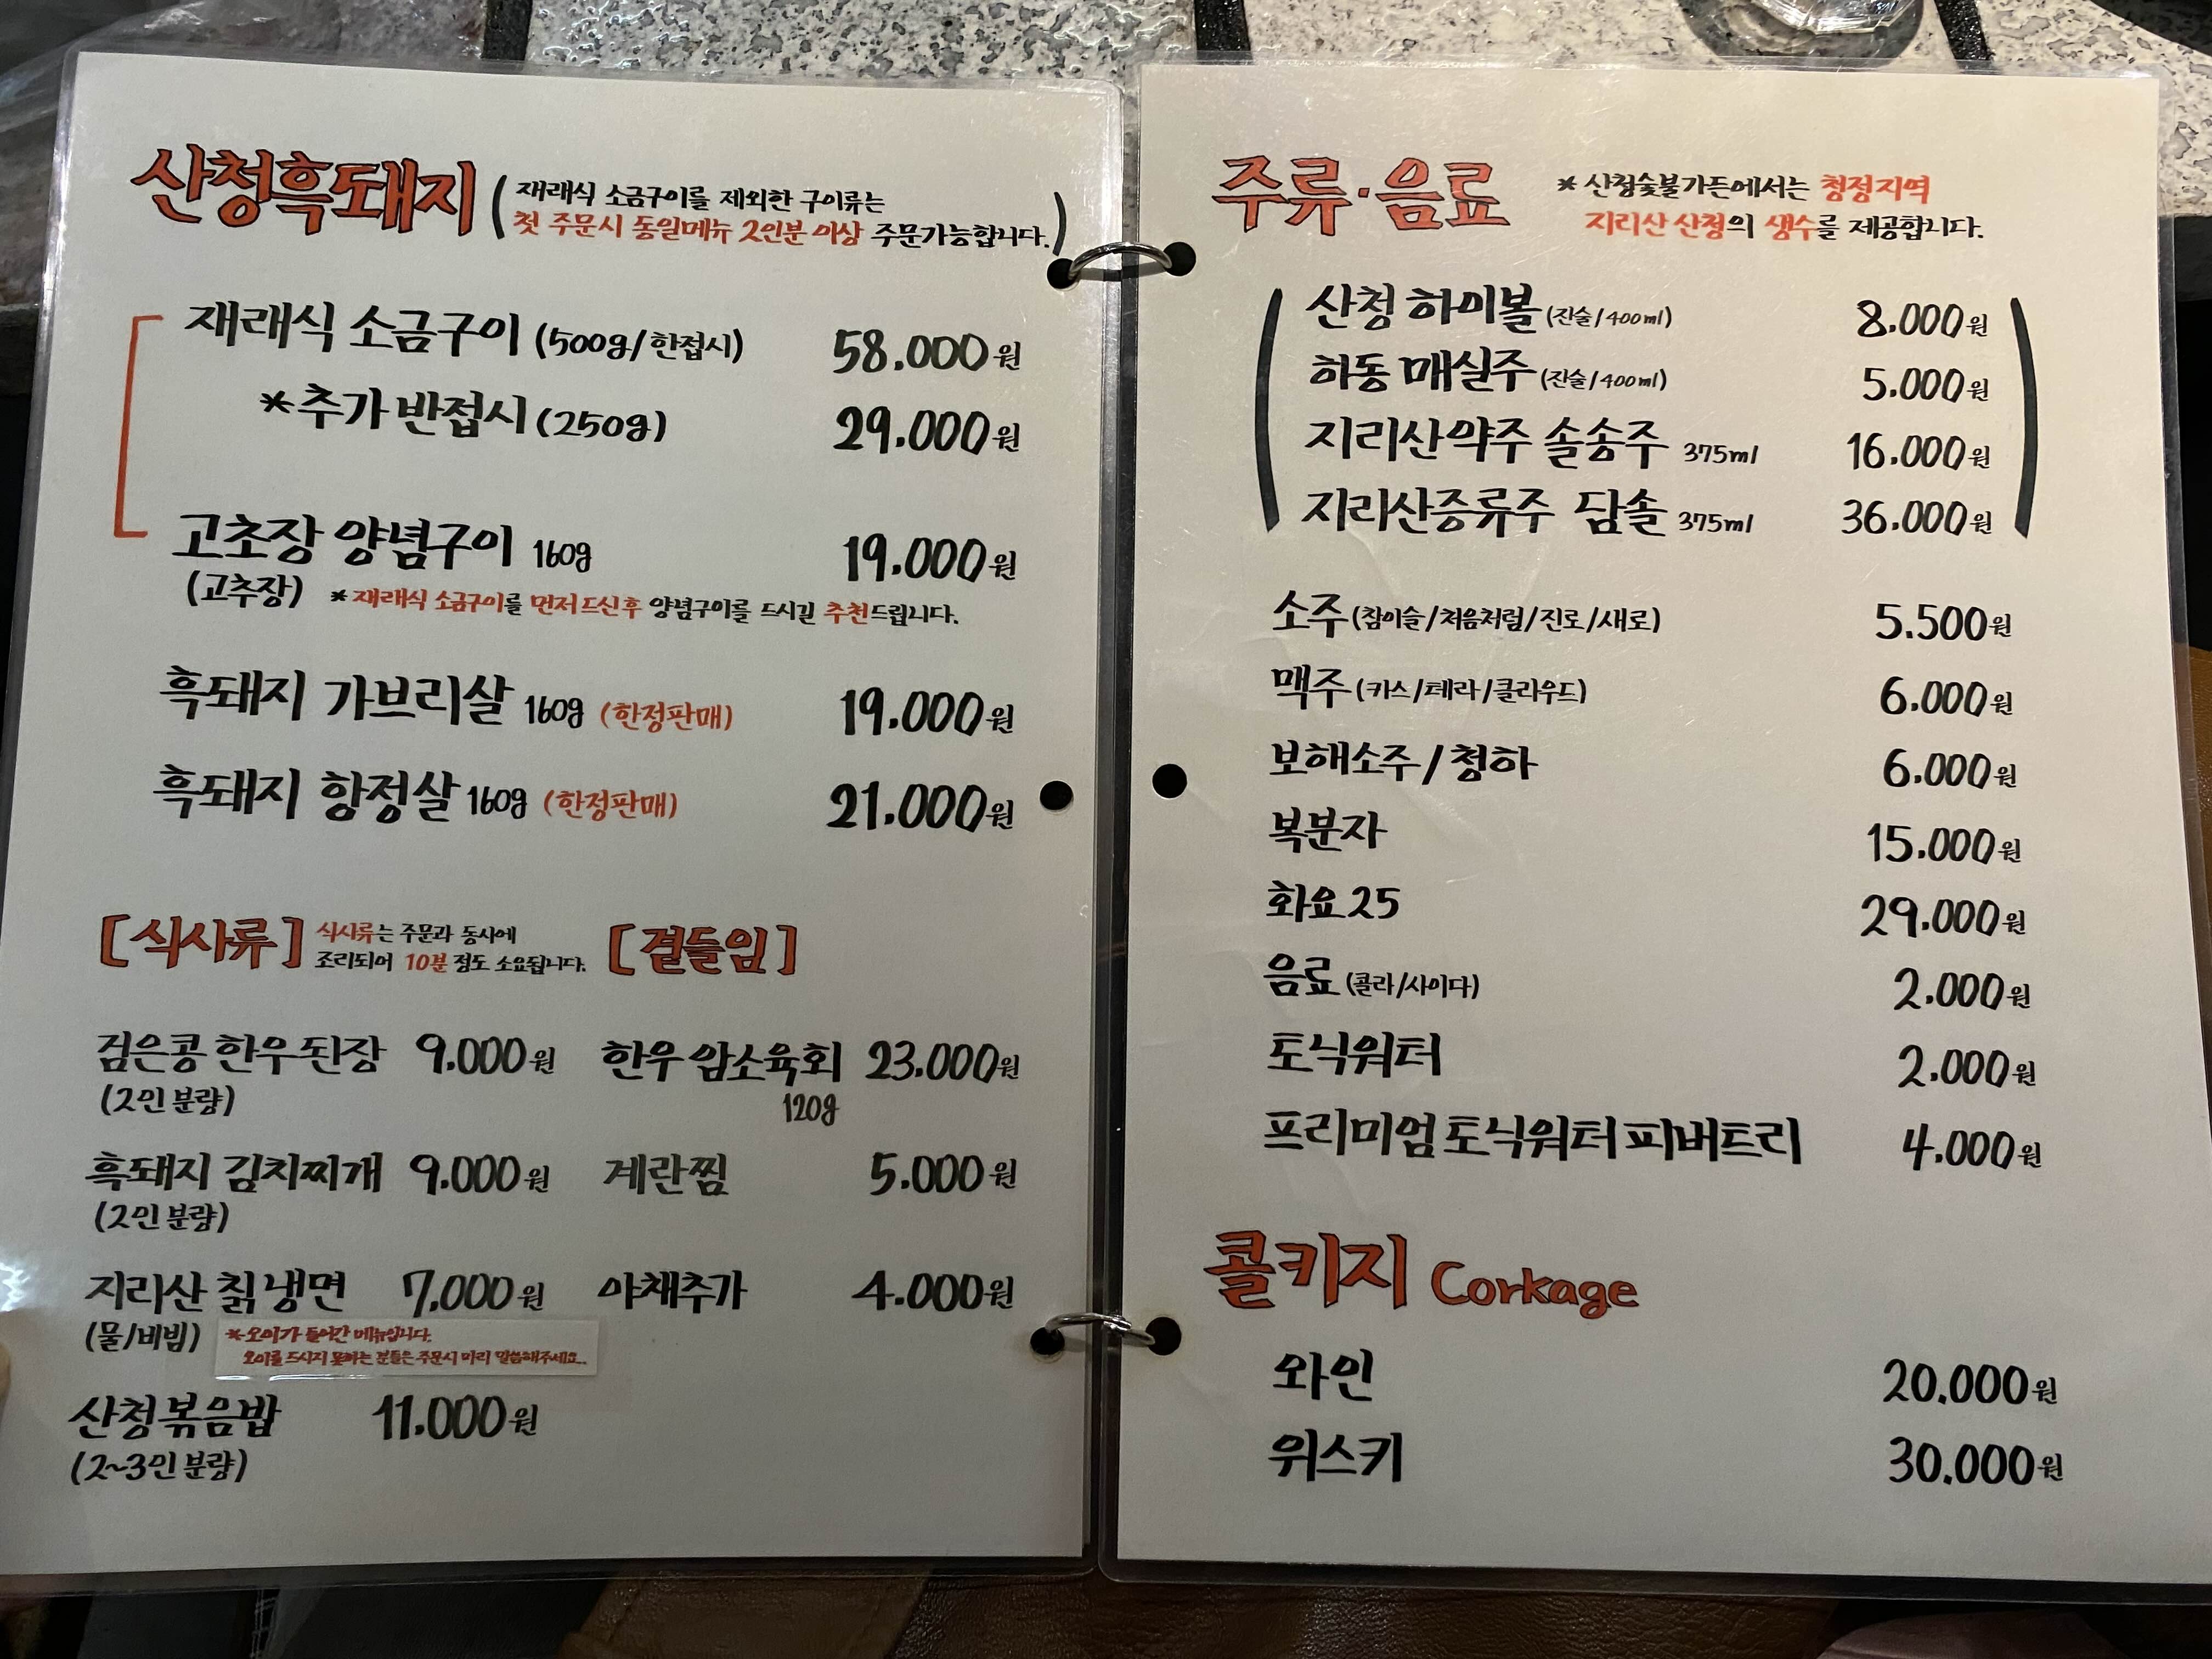 산청흑돼지 (재래식 소금구이를 제외한 구이류는
첫 주문시 동일메뉴 2인분 이상 주문가능합니다.)
재래식 소금구이 (500g/한접시) 58.000원
*추가 반접시 (250g) 29.000원
고초장 양념구이 160g 19.000원
(고추장) *재래식 소금구이를 먼저 드신후 양념구이를 드시길 추천드립니다.
흑돼지 가브리살 160g (한정판매) 19.000원
흑돼지 항정살 160g (한정판매) 21.000원
[식사류] 식사류는 주문과 동시에
조리되어 10분 정도 소요됩니다.
검은콩 한우된장 9.000원
(2인 분량)
흑돼지 김치찌개 9.000원
(2인 분량)
지리산 칡냉면 7.000원
(물/비빔) *오이가 들어간 메뉴입니다.
오이를 드시지 못하는 분들은 주문시 미리 말씀해주세요..
산청볶음밥 11.000원
(2~3인 분량)
[곁들임]
한우 암소육회 23.000원
120g
계란찜 5.000원
야채추가 4.000원
주류·음료 * 산청숯불가든에서는 청정지역
지리산 산청의 생수를 제공합니다.
산청 하이볼 (진술/400ml) 8.000원
하동 매실주 (진술/400ml) 5.000원
지리산약주 솔송주 375ml 16.000원
지리산증류주 담솔 375ml 36.000원
소주 (참이슬/처음처럼/진로/새로) 5.500원
맥주 (카스/테라/클라우드) 6.000원
보해소주/청하 6.000원
복분자 15.000원
화요25 29.000원
음료 (콜라/사이다) 2.000원
토닉워터 2.000원
프리미엄 토닉워터 피버트리 4.000원
콜키지 Corkage
와인 20.000원
위스키 30.000원